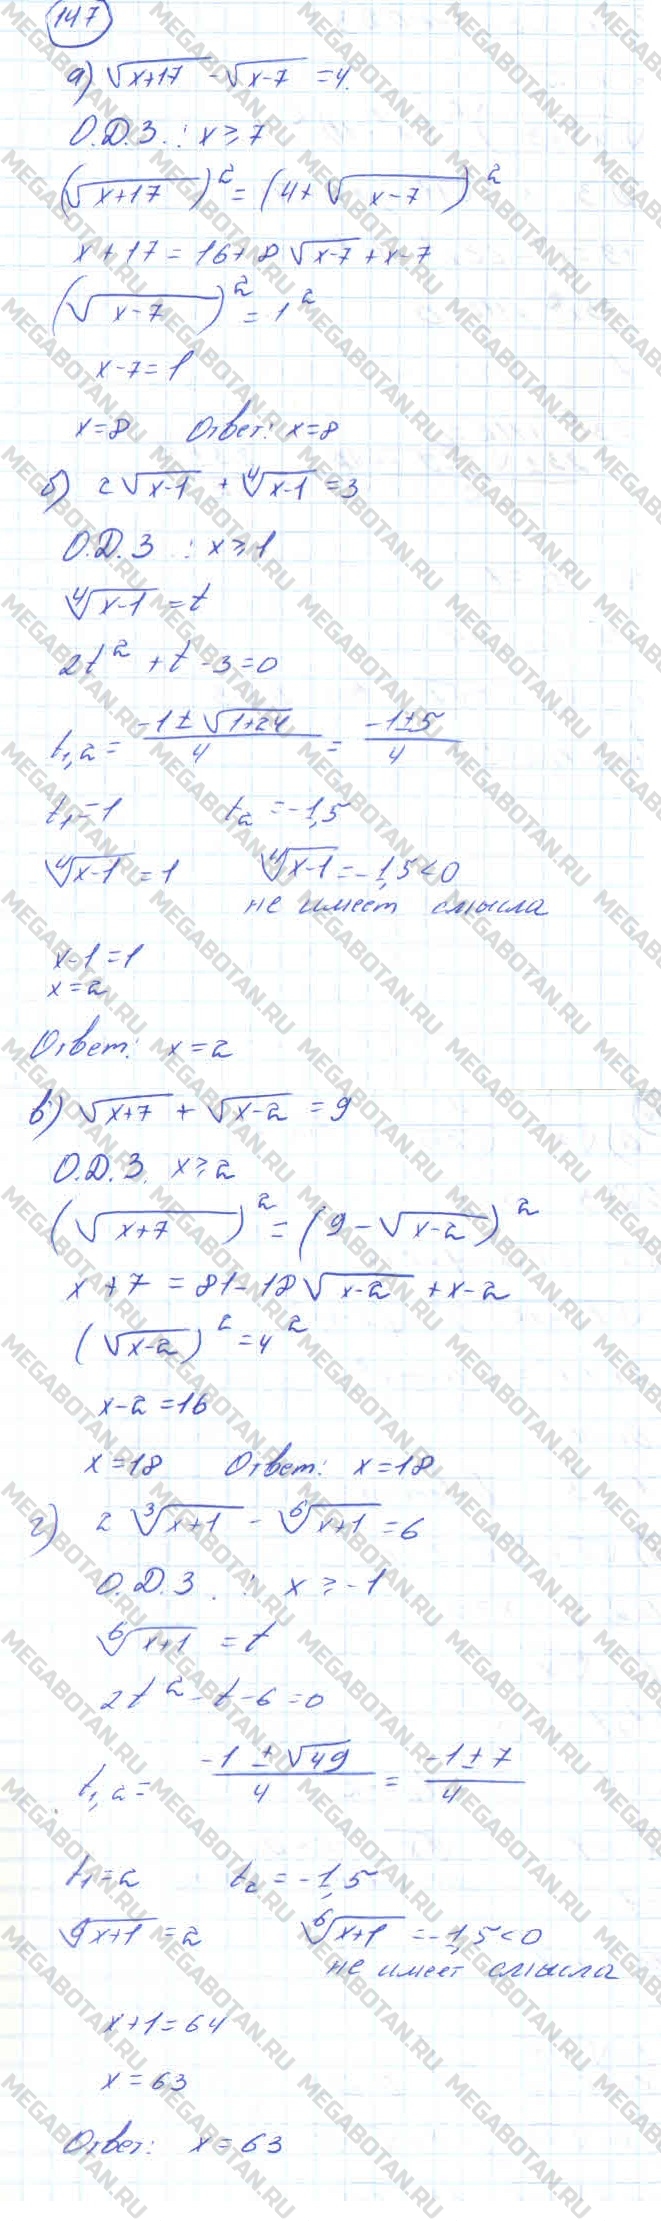 147
а) √(x+17) - √(x-7) = 4.
О.Д.З. : x ≥ 7
(√(x+17))² = (4+√(x-7))²
x+17 = 16+8√(x-7) + x-7
(√(x-7))² = 1²
x-7=1
x=8 Ответ: x=8
б) 2√(x-1) + ⁴√(x-1) = 3
О.Д.З : x ≥ 1
⁴√(x-1) = t
2t² + t - 3 = 0
t₁,₂ = (-1 ± √(1+24))/4 = (-1±5)/4
t₁ = 1 t₂ = -1,5
⁴√(x-1) = 1 ⁴√(x-1) = -1,5 < 0
не имеет смысла
x-1=1
x=2
Ответ: x=2
в) √(x+7) + √(x-2) = 9
О.Д.З. x ≥ 2
(√(x+7))² = (9-√(x-2))²
x+7 = 81-18√(x-2) + x-2
(√(x-2))² = 4²
x-2=16
x=18 Ответ: x=18
г) 2 ³√(x+1) - ⁶√(x+1) = 6
О.Д.З. : x ≥ -1
⁶√(x+1) = t
2t² - t - 6 = 0
t₁,₂ = (-1 ± √49)/4 = (-1±7)/4
t₁=2 t₂ = -1,5
⁶√(x+1) = 2 ⁶√(x+1) = -1,5 < 0
не имеет смысла
x+1=64
x=63
Ответ: x=63
MEGABOTAN.RU